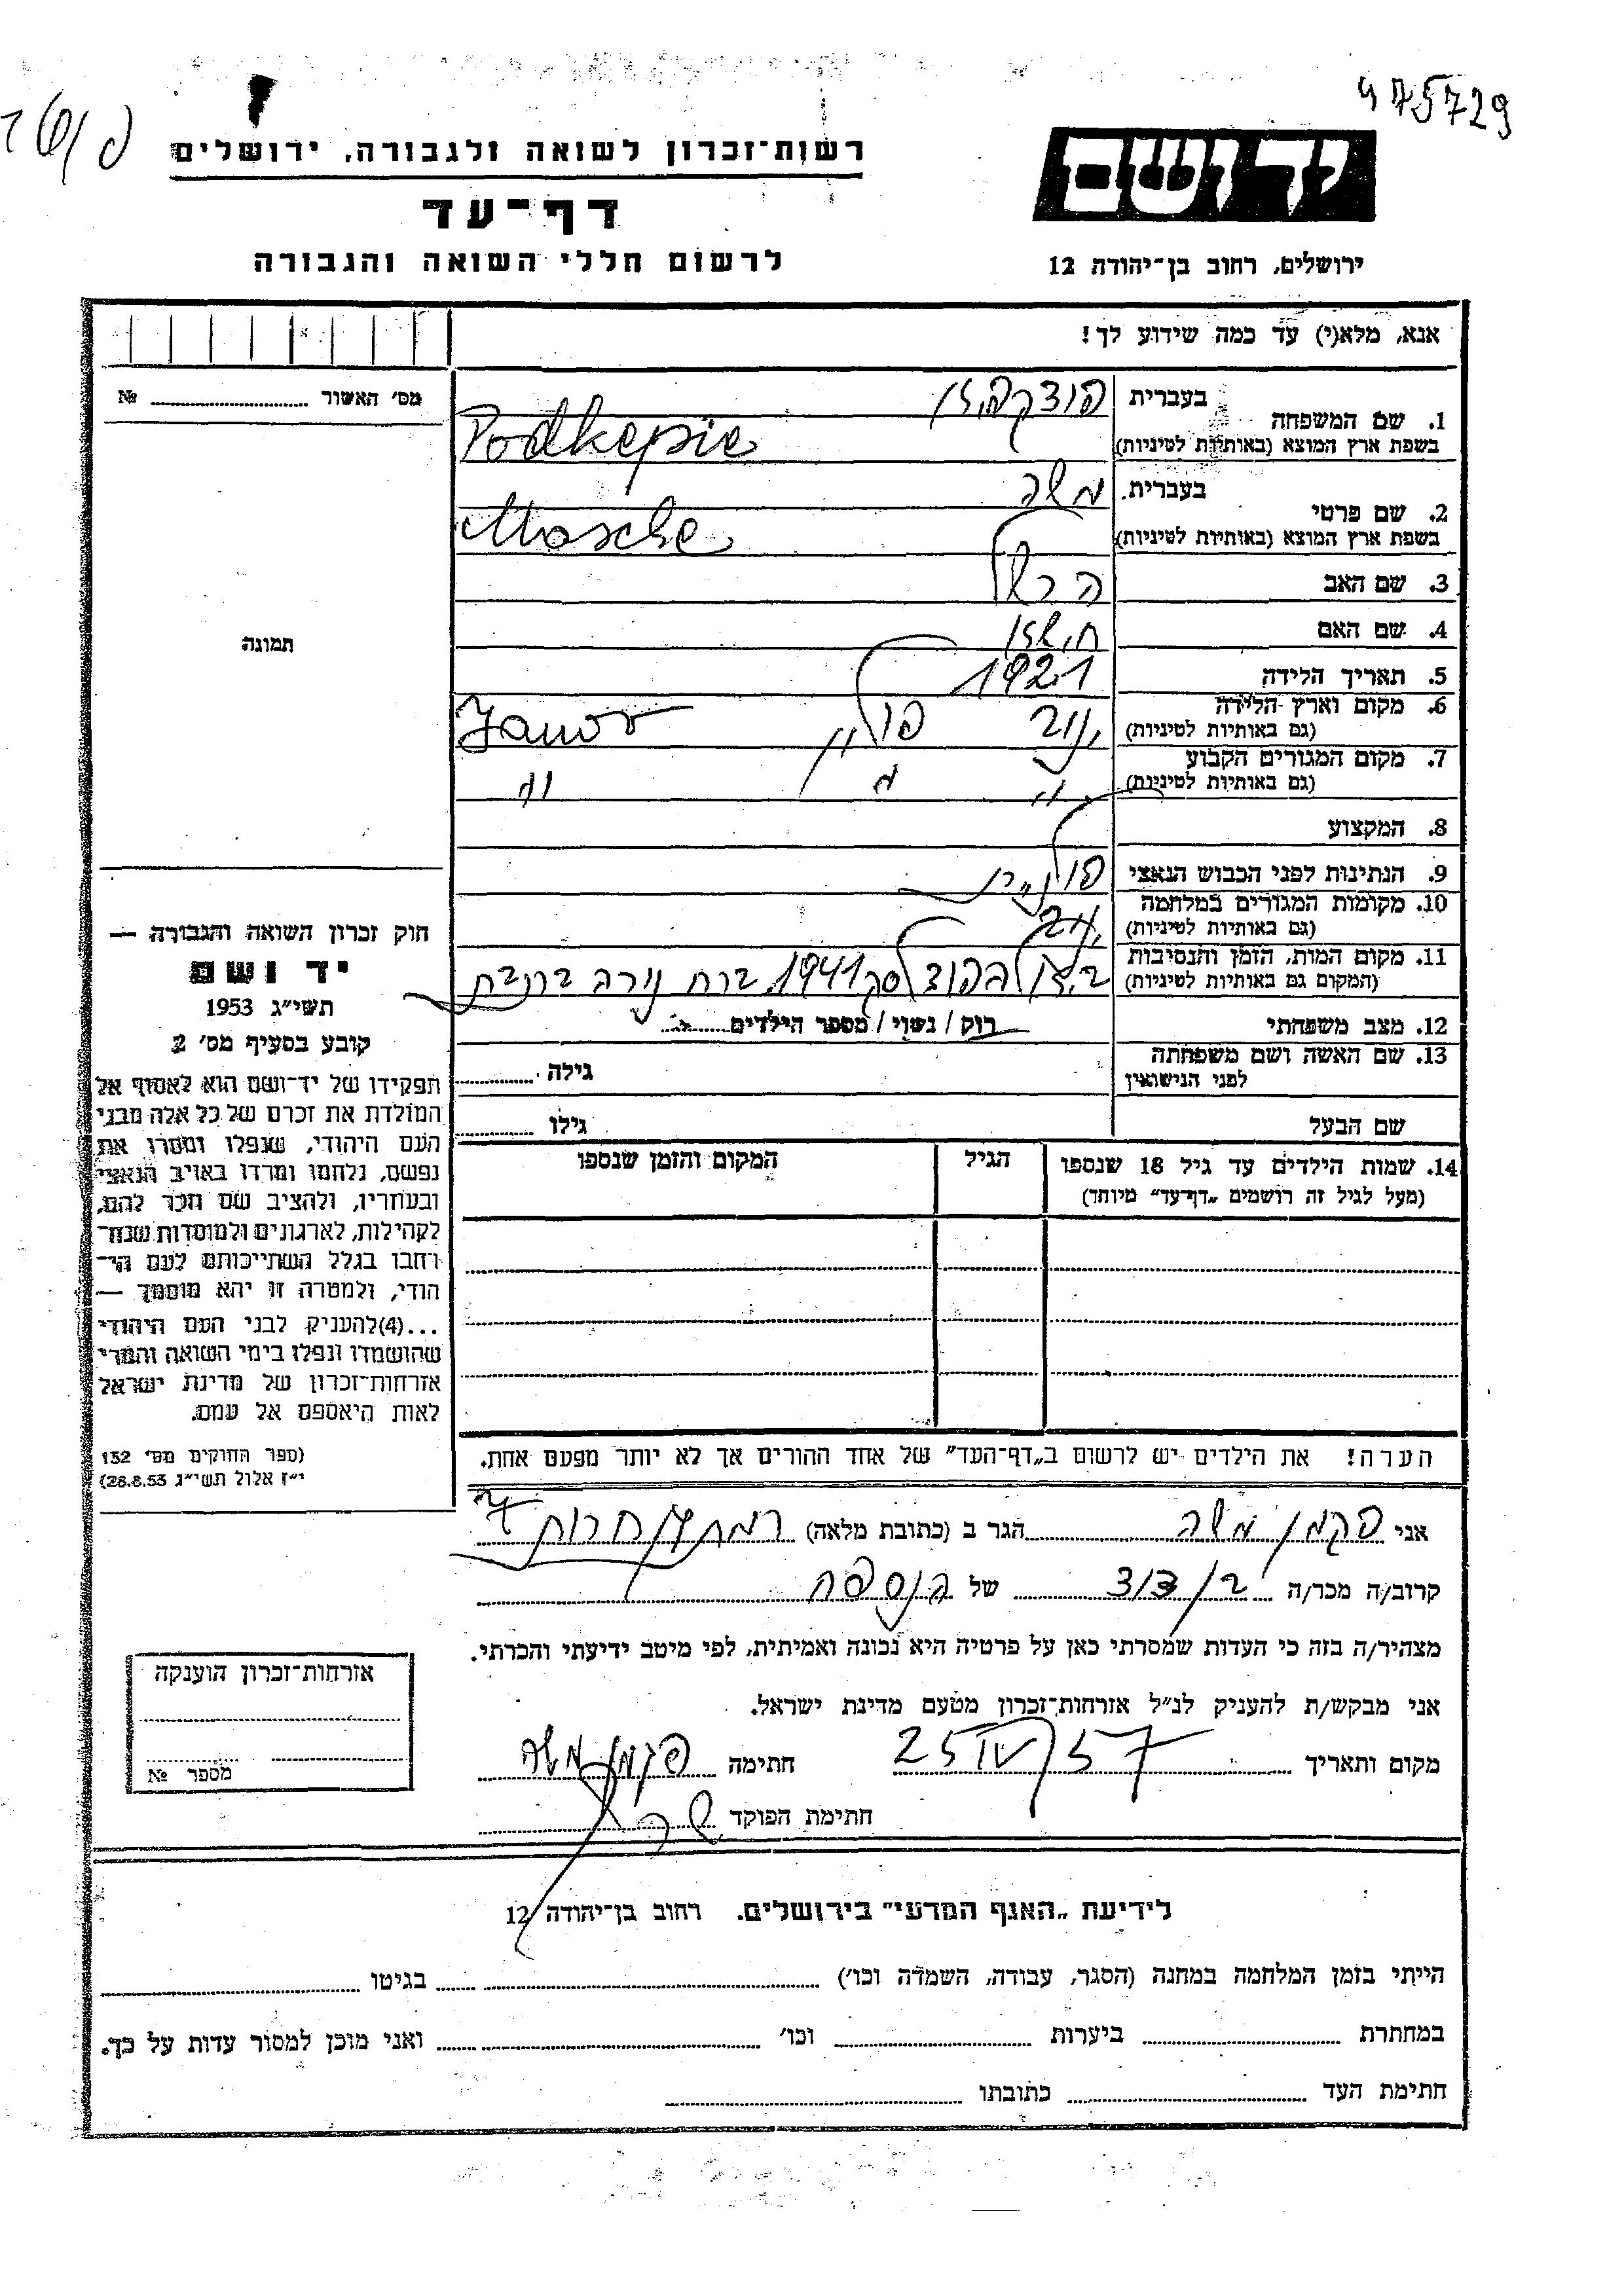 475729
רשות־זכרון לשואה ולגבורה, ירושלים
יד ושם
דף־עד
לרשום חללי השואה והגבורה
ירושלים, רחוב בן־יהודה 12
אנא, מלא(י) עד כמה שידוע לך!
מס׳ האשור № 
1. שם המשפחה
בעברית
בשפת ארץ המוצא (באותיות לטיניות) Podkepie
2. שם פרטי
בעברית. משה
בשפת ארץ המוצא (באותיות לטיניות) Mosche
3. שם האב הרשל
4. שם האם
5. תאריך הלידה 1921
6. מקום וארץ הלידה
(גם באותיות לטיניות) ינוב פולין Janov
7. מקום המגורים הקבוע
(גם באותיות לטיניות) " " "
8. המקצוע
9. הנתינות לפני הכבוש הנאצי פולנית
10. מקומות המגורים במלחמה
(גם באותיות לטיניות) ינוב
11. מקום המות, הזמן והנסיבות
(המקום גם באותיות לטיניות) 1941 ברח נורה
12. מצב משפחתי רוק / נשוי / מספר הילדים
13. שם האשה ושם משפחתה
לפני הנישואין
גילה
שם הבעל גילו
14. שמות הילדים עד גיל 18 שנספו
(מעל לגיל זה רושמים „דף־עד״ מיוחד)
הגיל
המקום והזמן שנספו
הערה! את הילדים יש לרשום ב„דף־העד״ של אחד ההורים אך לא יותר מפעם אחת.
תמונה
חוק זכרון השואה והגבורה —
יד ושם
תשי״ג 1953
קובע בסעיף מס׳ 2
תפקידו של יד־ושם הוא לאסוף אל
המולדת את זכרם של כל אלה מבני
העם היהודי, שנפלו ומסרו את
נפשם, נלחמו ומרדו באויב הנאצי
ובעוזריו, ולהציב שם וזכר להם,
לקהילות, לארגונים ולמוסדות שנח־
רחבו בגלל השתייכותם לעם הי־
הודי, ולמטרה זו יהא מוסמך —
...(4)להעניק לבני העם היהודי
שהושמדו ונפלו בימי השואה והמרי
אזרחות־זכרון של מדינת ישראל
לאות היאספם אל עמם.
(ספר החוקים מס׳ 132
י״ז אלול תשי״ג 28.8.53)
אני פקמן משה הגר ב (כתובת מלאה) רמת גן חרות
קרוב/ה מכר/ה של הנספה
מצהיר/ה בזה כי העדות שמסרתי כאן על פרטיה היא נכונה ואמיתית, לפי מיטב ידיעתי והכרתי.
אני מבקש/ת להעניק לנ״ל אזרחות־זכרון מטעם מדינת ישראל.
מקום ותאריך 25 IV 57 חתימה פקמן משה
חתימת הפוקד
אזרחות־זכרון הוענקה
מספר №
לידיעת „האגף המדעי״ בירושלים. רחוב בן־יהודה 12
הייתי בזמן המלחמה במחנה (הסגר, עבודה, השמדה וכו׳) בגיטו
במחתרת ביערות וכו׳ ואני מוכן למסור עדות על כך.
חתימת העד כתובתו